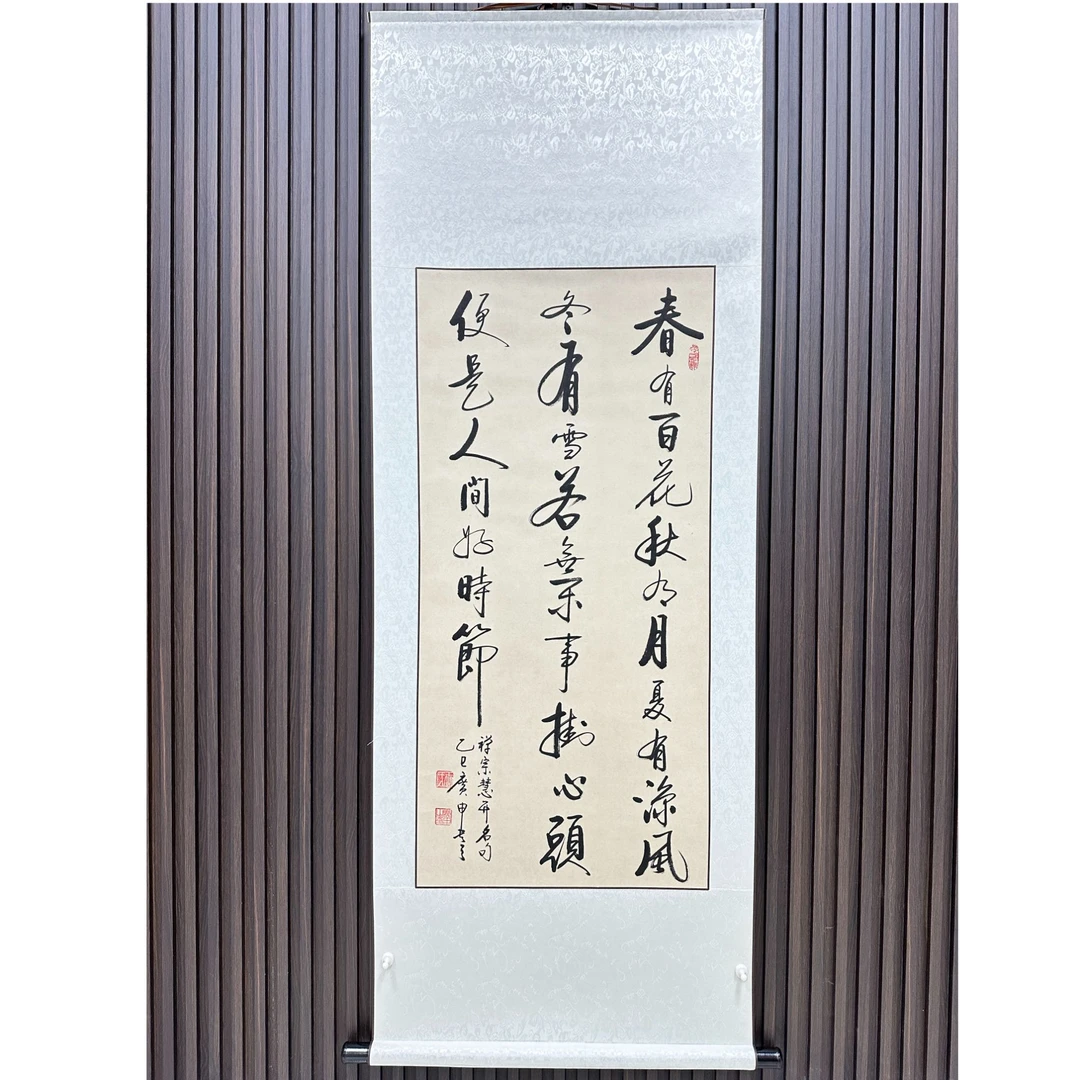 春有百花秋有月夏有涼風
冬有雪若無閑事掛心頭
便是人間好時節
禪宗慧開名句
乙巳廣申書